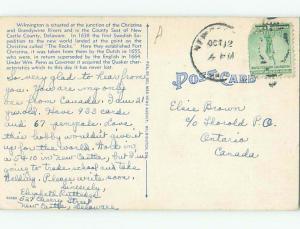 Wilmington is situated at the junction of the Christina
and Brandywine Rivers and is the County Seat of New
Castle County, Delaware. In 1638 the first Swedish Ex-
pedition to the new world landed at the point on the
Christina called "The Rocks." Here they established Fort
Christina. It was taken from them by the Dutch in 1655,
who were, in return superseded by the English in 1664.
Under Wm. Penn as Governor it acquired the Quaker char-
acteristics which to this day it has never lost
So very glad to hear from
you. You are my only
one from Canada. I am 21
yrs old. Have 903 cards
and 67 penpals. Love
this hobby wouldn't give it
up for the world. Work in
a 5 & 10 in New Castle, but I'm
going to trade school and take
Welding. Please write soon.
Sincerely,
Elizabeth Rutledge
527 Cherry Street
New Castle, Delaware
POST CARD
OCT 12
PM
Elsie Brown
c/o Florold P.O.
Ontario
Canada